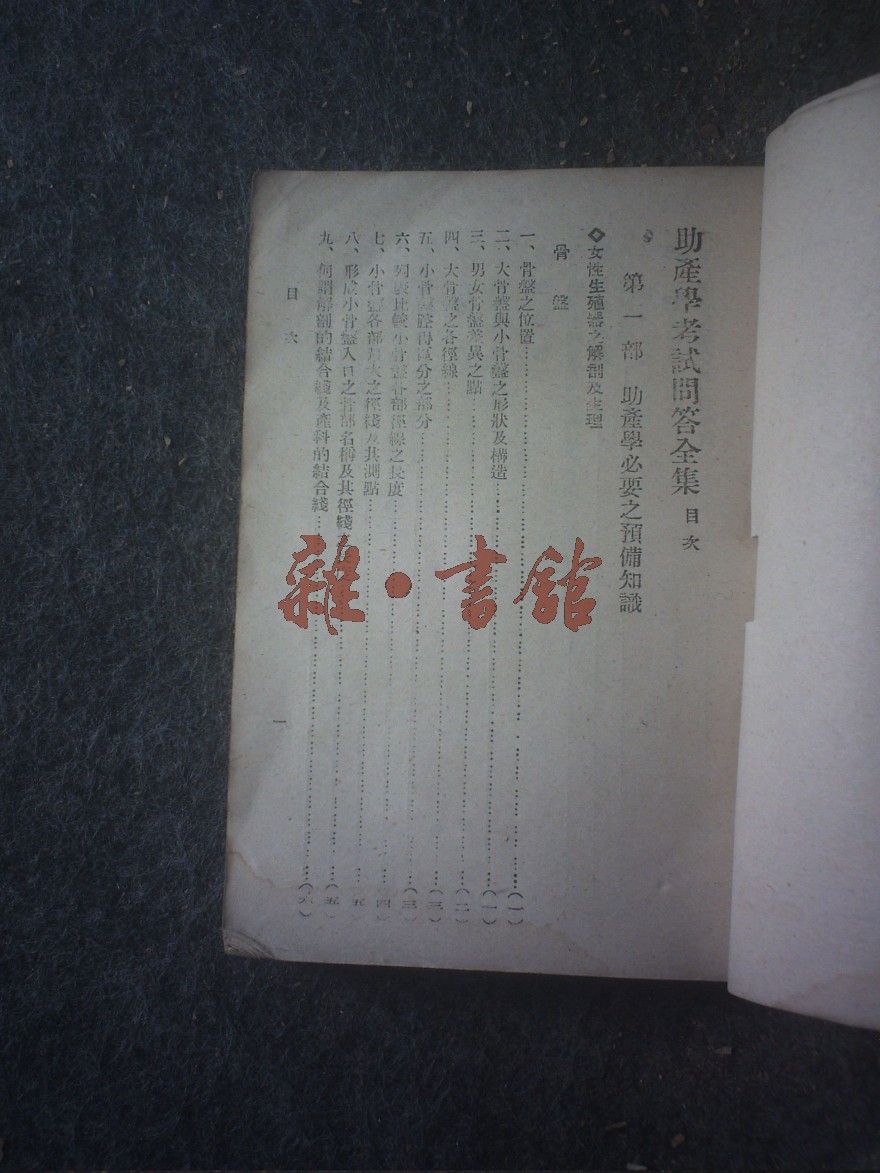 助產學考試問答全集 目次
第一部 助產學必要之預備知識
◇女性生殖器之解剖及生理
骨盤
一、骨盤之位置……(一)
二、大骨盤與小骨盤之形狀及構造……(一)
三、男女骨盤差異之點……(二)
四、大骨盤之各徑線……(三)
五、小骨盤腔得區分之部分……(三)
六、列表比較小骨盤各部徑線之長度……四
七、小骨盤各部最大之徑綫及其測點……五
八、形成小骨盤入口之骨部名稱及其徑綫……(五)
九、何謂解剖的結合綫及產科的結合綫……(六)
目次
一
雜·書館